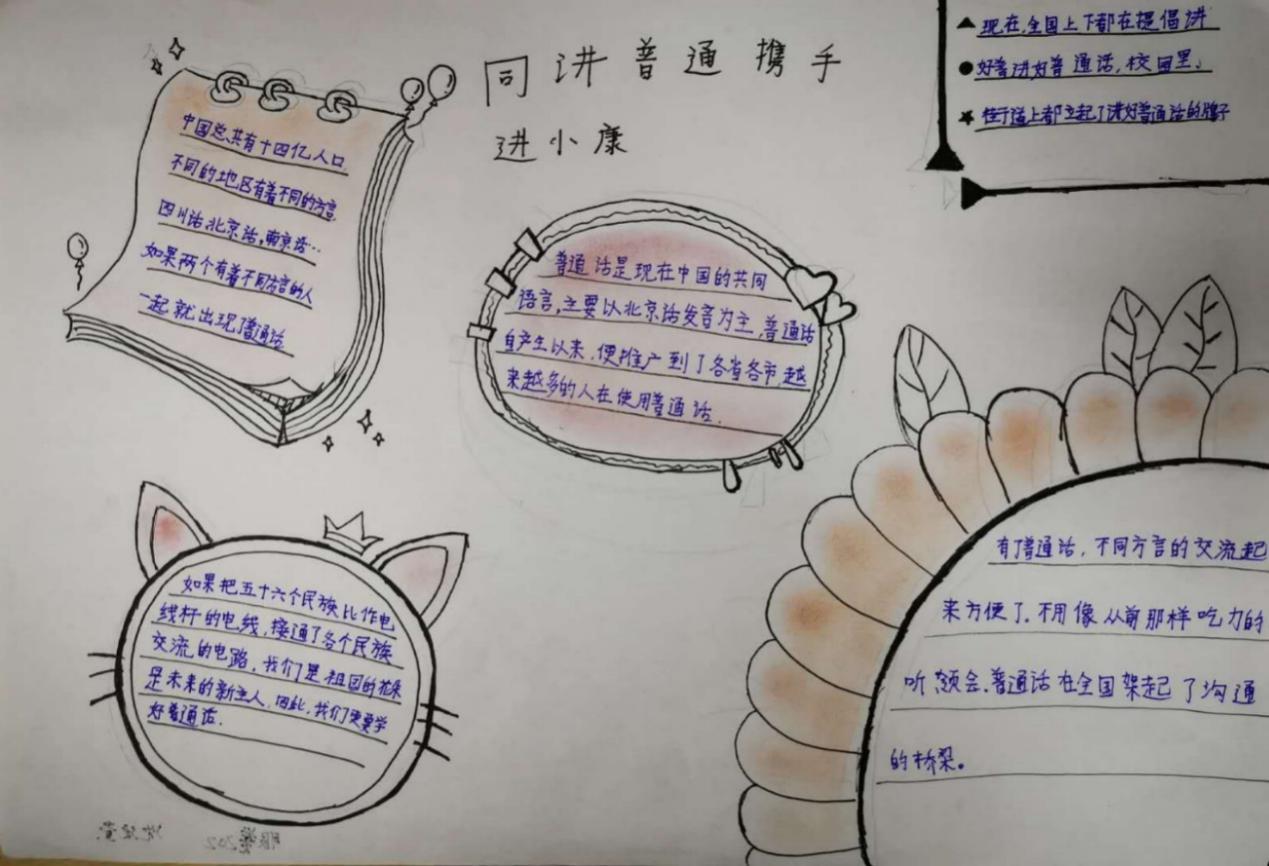 同讲普通携手
进小康
现在,全国上下都在提倡讲
好普通话,校园里、
街道上都立起了讲好普通话的牌子
中国总共有十四亿人口
不同的地区有着不同的方言
四川话,北京话,南京话…
如果两个有着不同方言的人
一起就出现了普通话
普通话是现在中国的共同
语言,主要以北京话发音为主,普通话
自产生以来,便推广到了各省各市,越
来越多的人在使用普通话.
如果把五十六个民族比作电
线杆的电线,接通了各个民族
交流的电路,我们是祖国的花朵
是未来的新主人,因此,我们更要学
好普通话.
有了普通话,不同方言的交流起
来方便了.不用像从前那样吃力的
听,领会.普通话在全国架起了沟通
的桥梁。